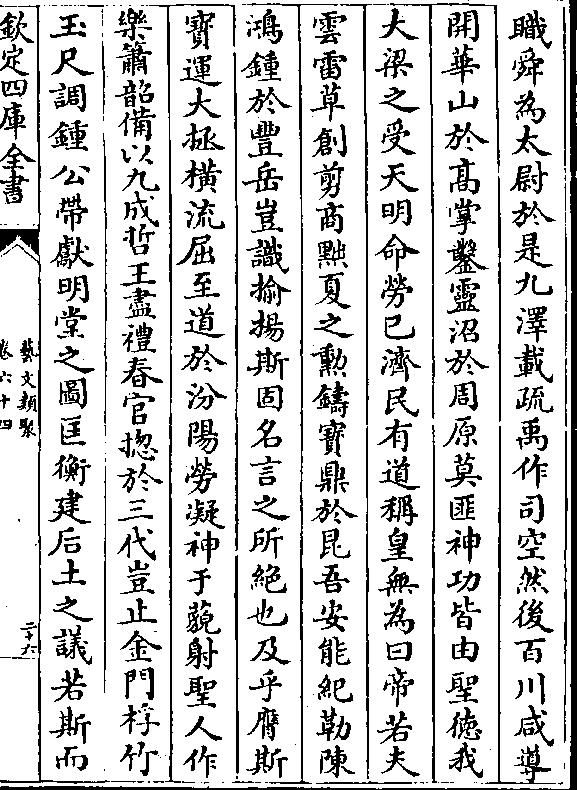 職舜為太尉於是九澤載疏禹作司空然後百川咸導
開華山於高掌鑿靈沼於周原莫匪神功皆由聖德我
大梁之受天明命勞己濟民有道稱皇無為曰帝若夫
雲雷草創剪商黜夏之勲鑄寶鼎於昆吾安能紀勒陳
鴻鍾於豐岳豈識揄揚斯固名言之所絶也及乎膺斯
寶運大拯橫流屈至道於汾陽勞凝神于藐射聖人作
樂簫韶備以九成哲王盡禮春官揔於三代豈止金門桴竹
玉尺調鍾公帶獻明堂之圖匡衡建后土之議若斯而
欽定四庫全書
藝文類聚
卷六十四
二十六